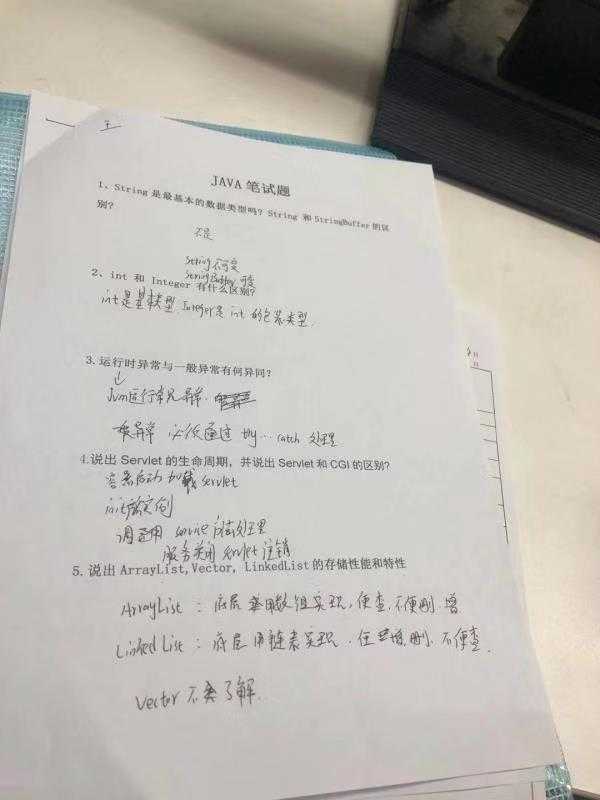 JAVA 笔试题
1、String 是最基本的数据类型吗? String 和 StringBuffer 的区
别?
不是
String 不可变
StringBuffer 可变
2、int 和 Integer 有什么区别?
int 是基本类型. Integer 是 int 的包装类型.
3.运行时异常与一般异常有何异同?
Jvm运行常见异常.
异常 必须通过 try... catch 处理
4.说出 Servlet 的生命周期，并说出 Servlet 和 CGI 的区别?
容器启动 加载 servlet
init 实例
调用 service 方法处理
服务关闭 servlet 注销
5.说出 ArrayList,Vector, LinkedList 的存储性能和特性
ArrayList : 底层 用数组实现, 便查, 不便删. 增
Linked List : 底层 用链表实现. 增, 删, 不便查.
Vector 不 了解.